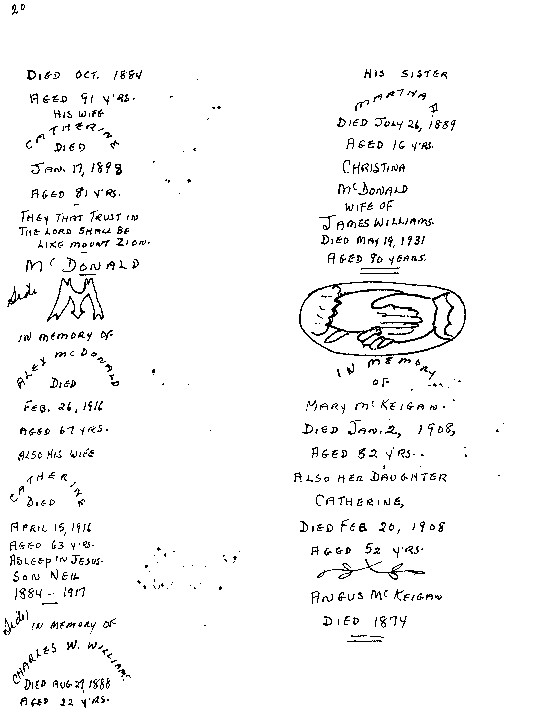 20
DIED OCT. 1884
AGED 91 YRS.
HIS WIFE
CATHERINE
DIED
JAN. 17, 1898
AGED 81 YRS.
THEY THAT TRUST IN
THE LORD SHALL BE
LIKE MOUNT ZION.
MCDONALD
Side
M
IN MEMORY OF
ALEX MCDONALD
DIED
FEB. 26, 1916
AGED 67 YRS.
ALSO HIS WIFE
CATHERINE
DIED
APRIL 15, 1916
AGED 63 YRS.
ASLEEP IN JESUS.
SON NEIL
1884 - 1917
Side
IN MEMORY OF
CHARLES W. WILLIAMS
DIED AUG 27, 1888
AGED 22 YRS.
HIS SISTER
MARTHA
DIED JULY 26, 1889
AGED 16 YRS.
CHRISTINA
MCDONALD
WIFE OF
JAMES WILLIAMS.
DIED MAY 19, 1931
AGED 90 YEARS.
IN MEMORY
OF
MARY MCKEIGAN.
DIED JAN. 2, 1908,
AGED 82 YRS.
ALSO HER DAUGHTER
CATHERINE,
DIED FEB 20, 1908
AGED 52 YRS.
ANGUS MCKEIGAN
DIED 1874